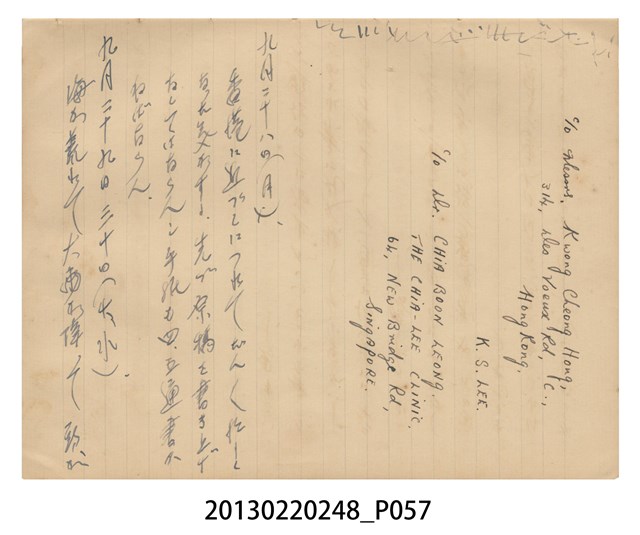 c/o Messrs. Kwong Cheong Hong,
314, Des Voeux Rd, C.,
Hong Kong.
K. S. LEE.
c/o Dr. CHIA BOON LEONG
THE CHIA-LEE CLINIC.
64, NEW BRIDGE Rd,
SINGAPORE.
九月二十八日(月)、
香港に近づくにつれてだんく忙しく
なる気がする、先づ原稿を書き上げ
なくてはならんし手紙も四、五通書か
ねばならん、
九月二十九日三十日(火、水)
海が荒れて大雨が降って頭が
20130220248_P057